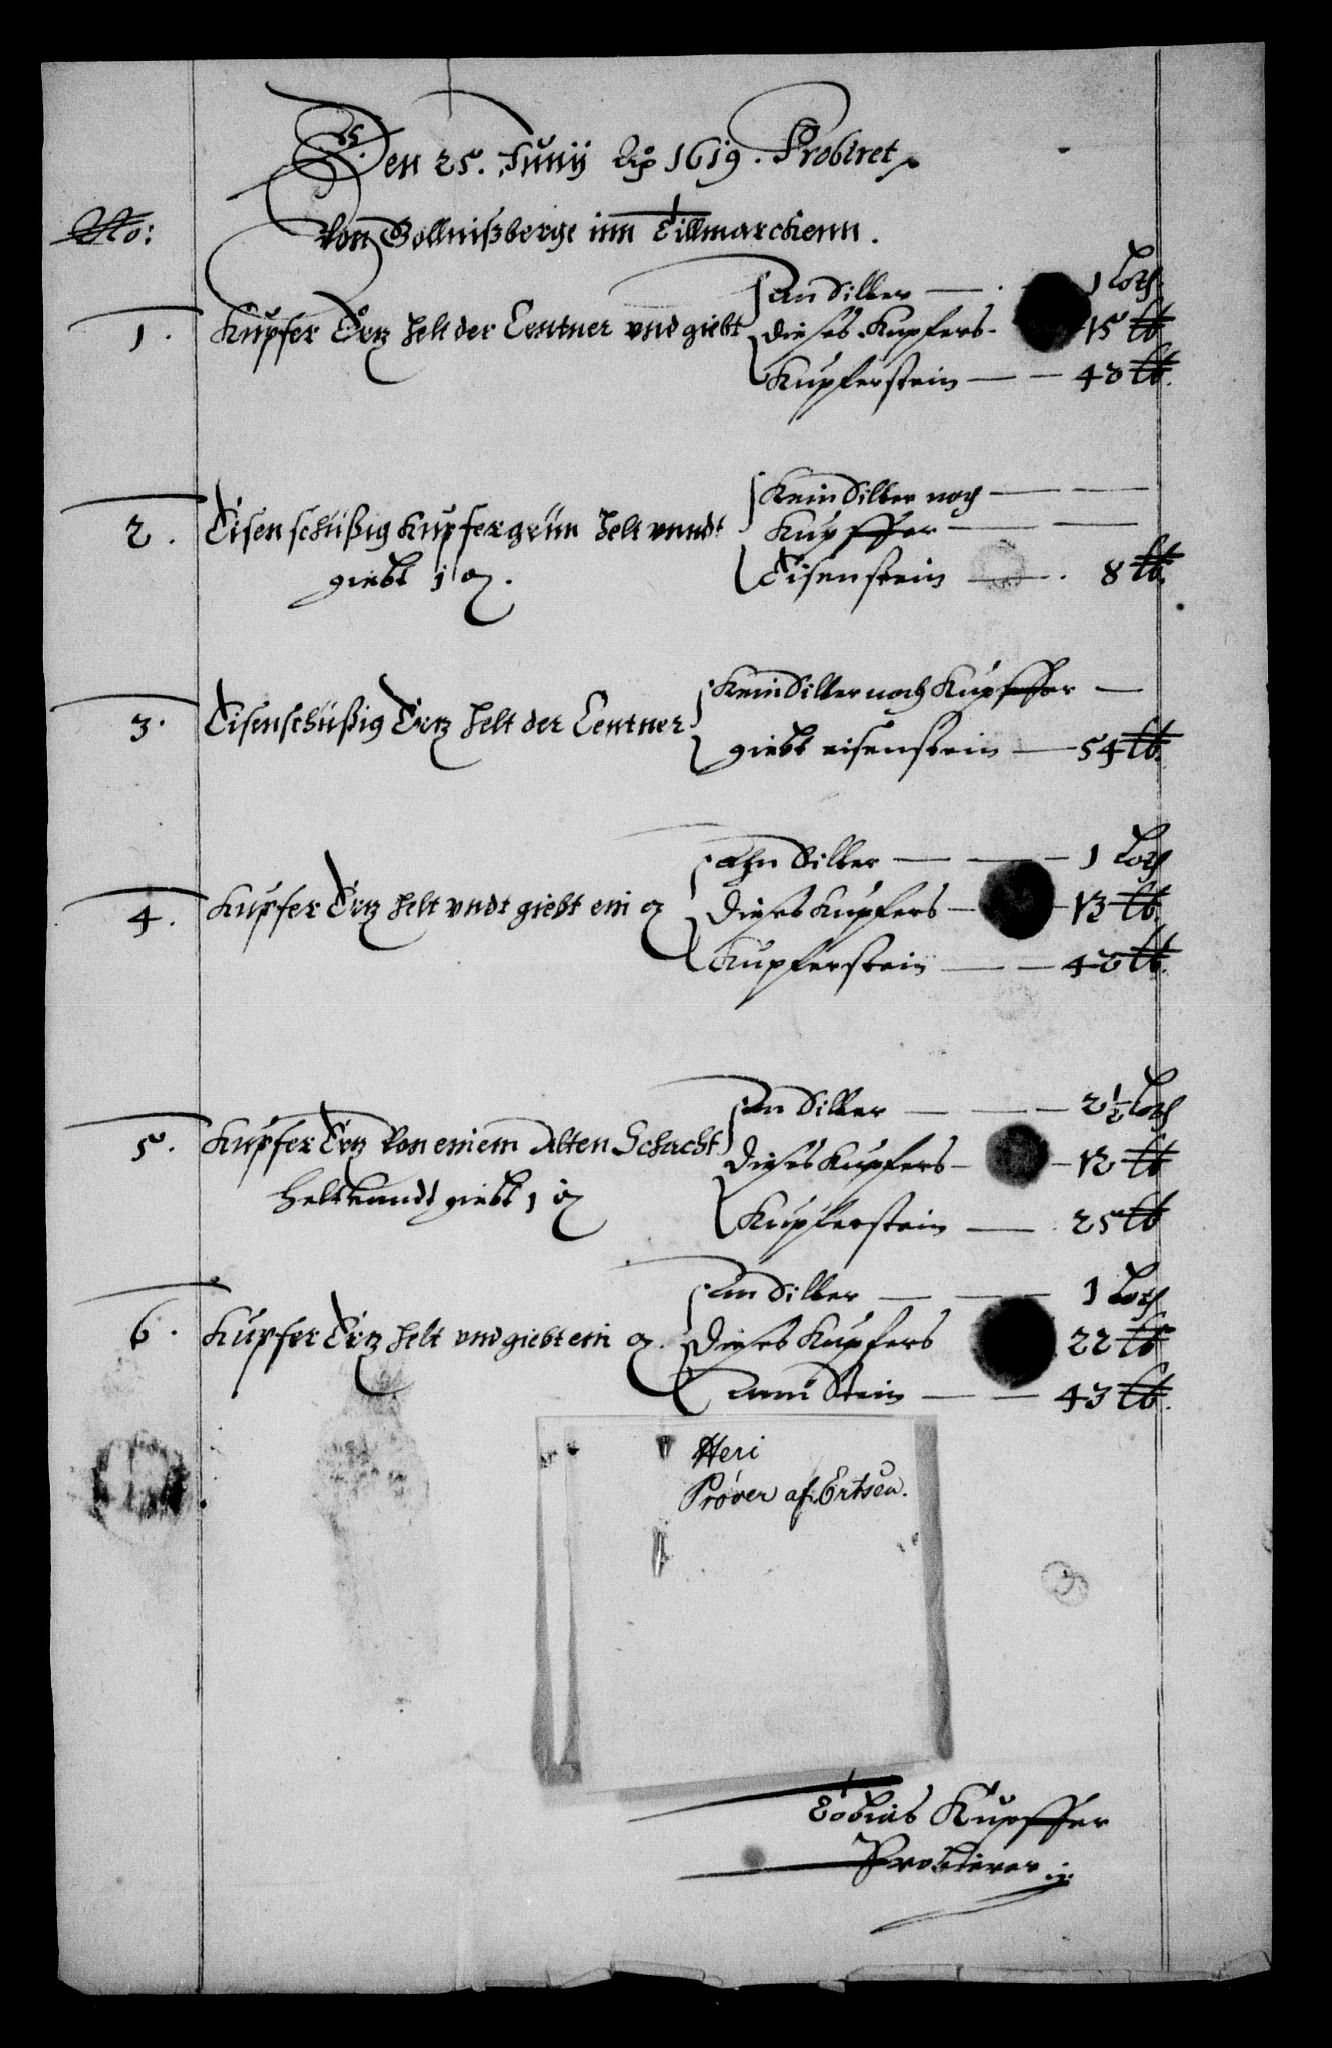 Den 25. Junij Ao 1619. Probiret
No:
Von Gollnißberge inn Tillmarckenn.
1. Kupfer Ertz helt der Centner vnd giebt
an Silber — 1 Loth
Dieses Kupfers — 15 lb
Kupferstein — 48 lb.
2. Eisenschüßig Kupfergrün helt vnndt
giebt 1 Ct.
Kein Silber noch —
Kupffer —
Eisenstein — 8 lb.
3. Eisenschüßig Ertz helt der Centner
Kein Silber noch Kupffer —
giebt eisenstein — 54 lb.
4. Kupfer Ertz helt vndt giebt ein Ct
Ahn Silber — 1 Loth
Dieses Kupfers — 13 lb.
Kupferstein — 40 lb.
5. Kupfer Ertz Von einem Alten Schacht
helt vnndt giebt 1 Ct
an Silber — 2½ Loth
Dieses Kupfers — 12 lb
Kupferstein — 25 lb
6. Kupfer Ertz helt vnd giebt ein Ct.
an Silber — 1 Loth
Dieses Kupfers 22 lb
Stein — 43 lb.
Heri
Prøver af Ertsen.
Tobias Kupffer
Probierer